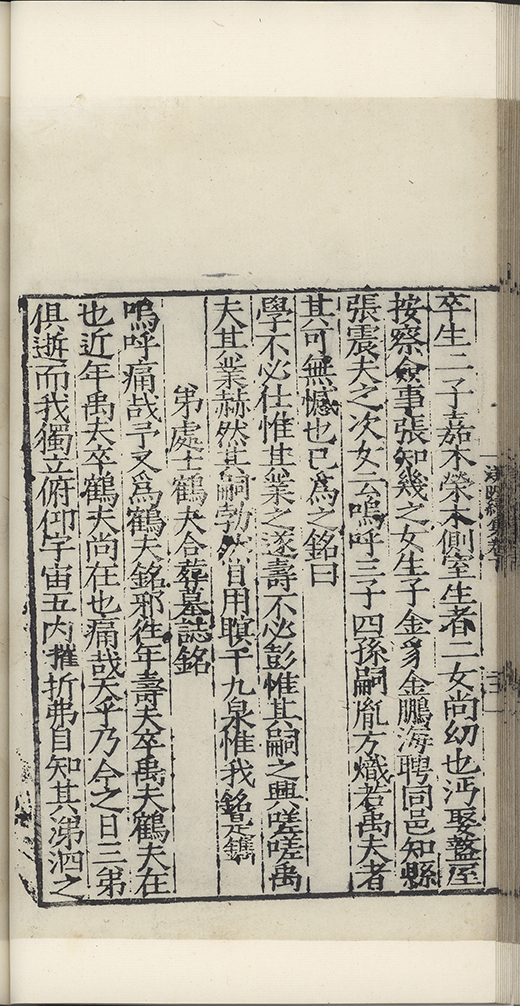 卒生二子嘉木榮木側室生者二女尚幼也沔娶盩厔
按察僉事張知幾之女生子金豸金鵬海聘同邑知縣
張震夫之次女云嗚呼三子四孫嗣胤方熾若禹夫者
其可無憾也已為之銘曰
學不必仕惟其業之遂壽不必彭惟其嗣之興嗟嗟禹
夫其業赫然其嗣勃然自用瞑于九泉惟我銘是鐫
弟處士鶴夫合葬墓誌銘
嗚呼痛哉予又爲鶴夫銘邪徃年壽夫卒禹夫鶴夫在
也近年禹夫卒鶴夫尚在也痛哉天乎乃今之日三弟
俱逝而我獨立俯仰宇宙五内摧折弗自知其涕泗之